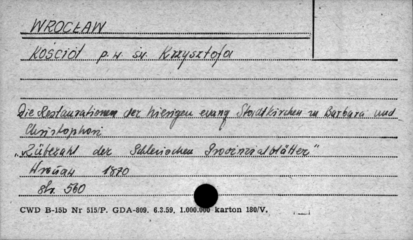 WROCŁAW
Kościół p.w. św. Krzysztofa
Die Restaurationen der hiesigen evang Stadtkirchen zu Barbara und
Christophori
„Rübezahl der Schlesischen Provinzialblätter"
1870
str. 560
CWD B-15b Nr 515/P. GDA-809. 6.2.59, 1.000.000 karton 180/V.